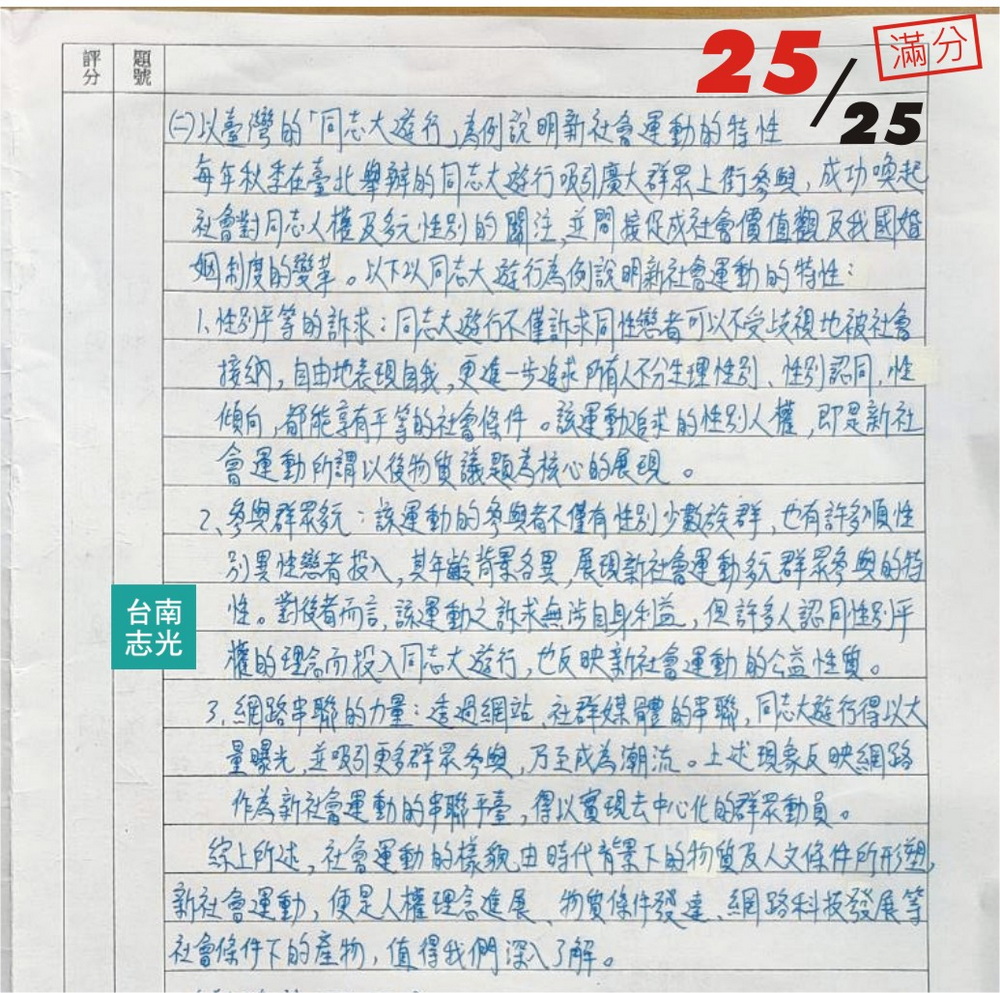 評分
題號
25/25
滿分
(二)以臺灣的「同志大遊行」為例說明新社會運動的特性
每年秋季在臺北舉辦的同志大遊行吸引廣大群眾上街參與,成功喚起
社會對同志人權及多元性別的關注,並間接促成社會價值觀及我國婚
姻制度的變革。以下以同志大遊行為例說明新社會運動的特性:
1、性別平等的訴求:同志大遊行不僅訴求同性戀者可以不受歧視地被社會
接納,自由地表現自我,更進一步追求所有人不分生理性別、性別認同、性
傾向,都能享有平等的社會條件。該運動追求的性別人權,即是新社
會運動所謂以後物質議題為核心的展現。
2、參與群眾多元:該運動的參與者不僅有性別少數族群,也有許多順性
別異性戀者投入,其年齡背景各異,展現新社會運動多元群眾參與的特
台南
志光
性。對後者而言,該運動之訴求無涉自身利益,但許多人認同性別平
權的理念而投入同志大遊行,也反映新社會運動的公益性質。
3、網路串聯的力量:透過網站、社群媒體的串聯,同志大遊行得以大
量曝光,並吸引更多群眾參與,乃至成為潮流。上述現象反映網路
作為新社會運動的串聯平臺,得以實現去中心化的群眾動員。
綜上所述,社會運動的樣貌由時代背景下的物質及人文條件所形塑,
新社會運動,便是人權理念進展、物質條件發達、網路科技發展等
社會條件下的產物,值得我們深入了解。